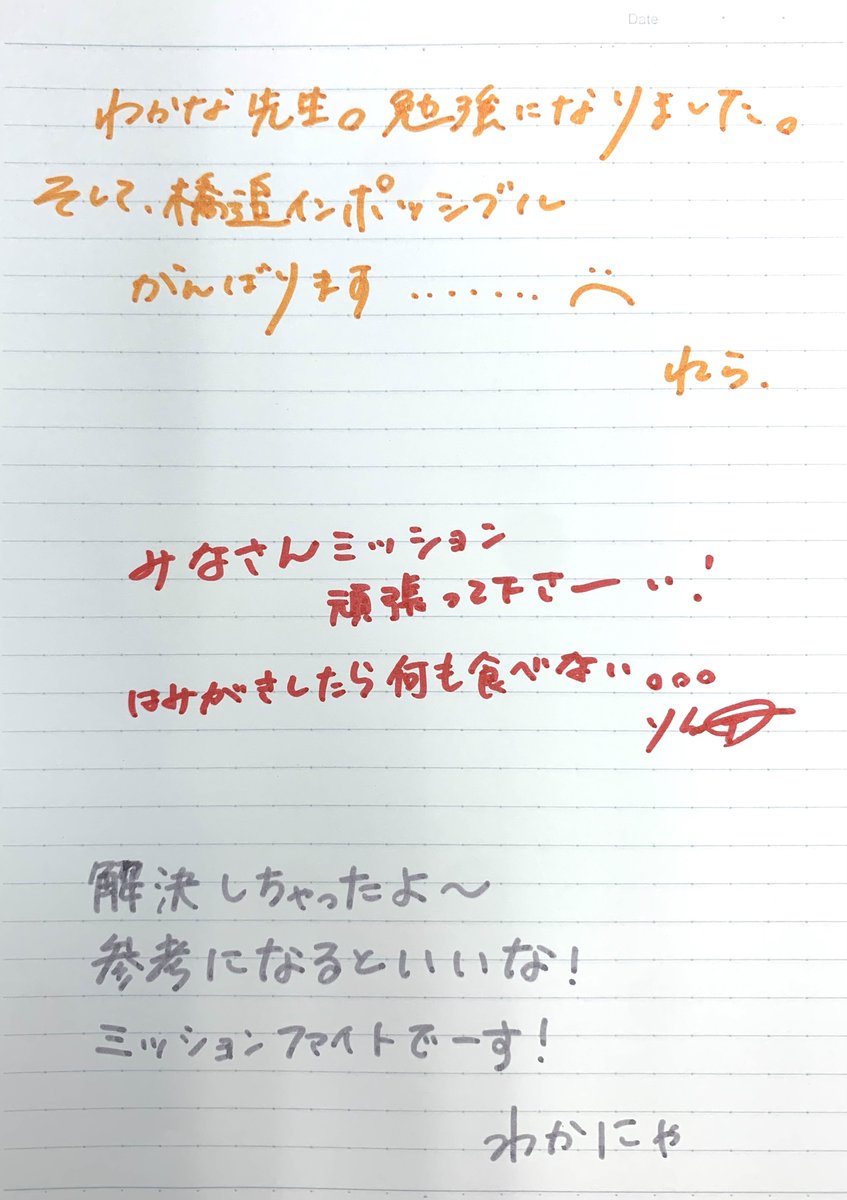 Date
わかな先生。勉強になりました。
そして、橋追インポッシブル
がんばります ........
れら.
みなさんミッション
頑張って下さーい!
はみがきしたら何も食べない。。。
解決しちゃったよ〜
参考になるといいな!
ミッションファイトでーす!
わかにゃ